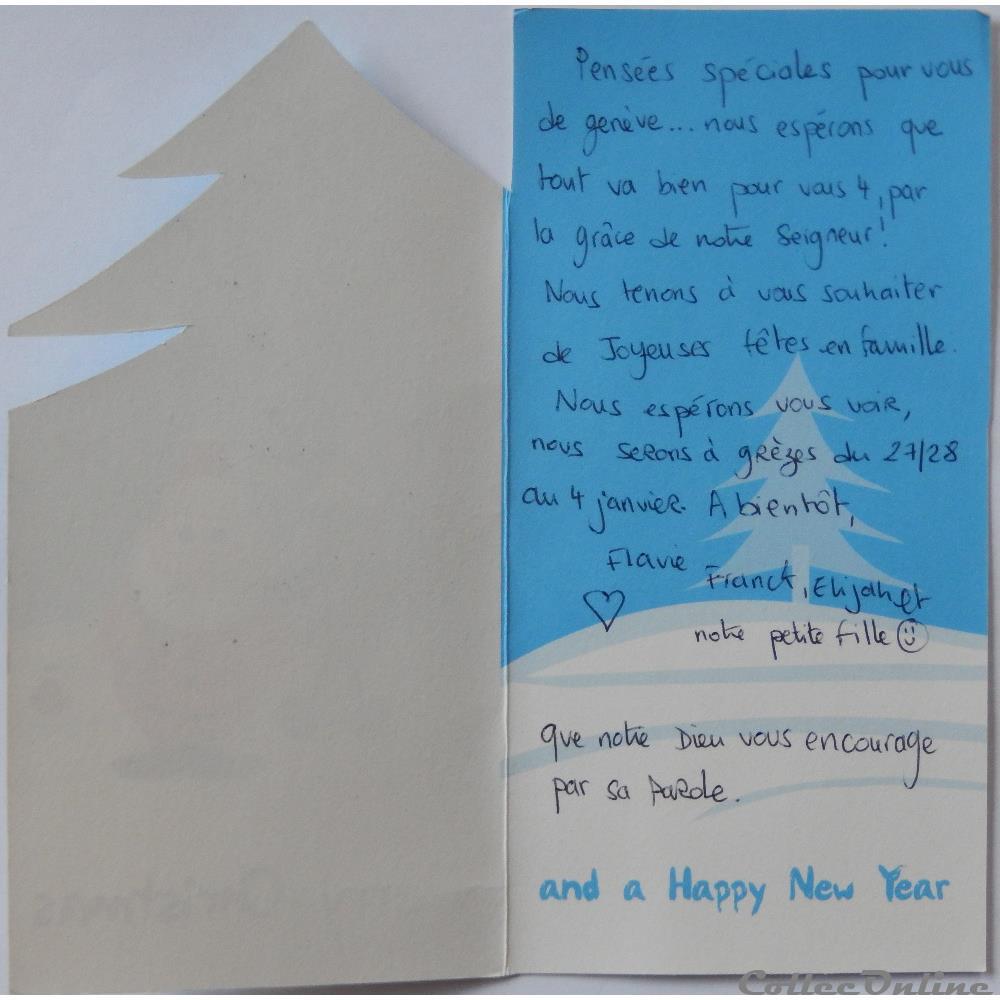 Pensées spéciales pour vous
de genève... nous espérons que
tout va bien pour vous 4, par
la grâce de notre Seigneur!
Nous tenons à vous souhaiter
de Joyeuses fêtes en famille.
Nous espérons vous voir,
nous serons à grèzes du 27/28
au 4 janvier. A bientôt,
Flavie Franck, Elijah et
notre petite fille
que notre Dieu vous encourage
par sa Parole.
and a Happy New Year
Christmas
CollecOnline